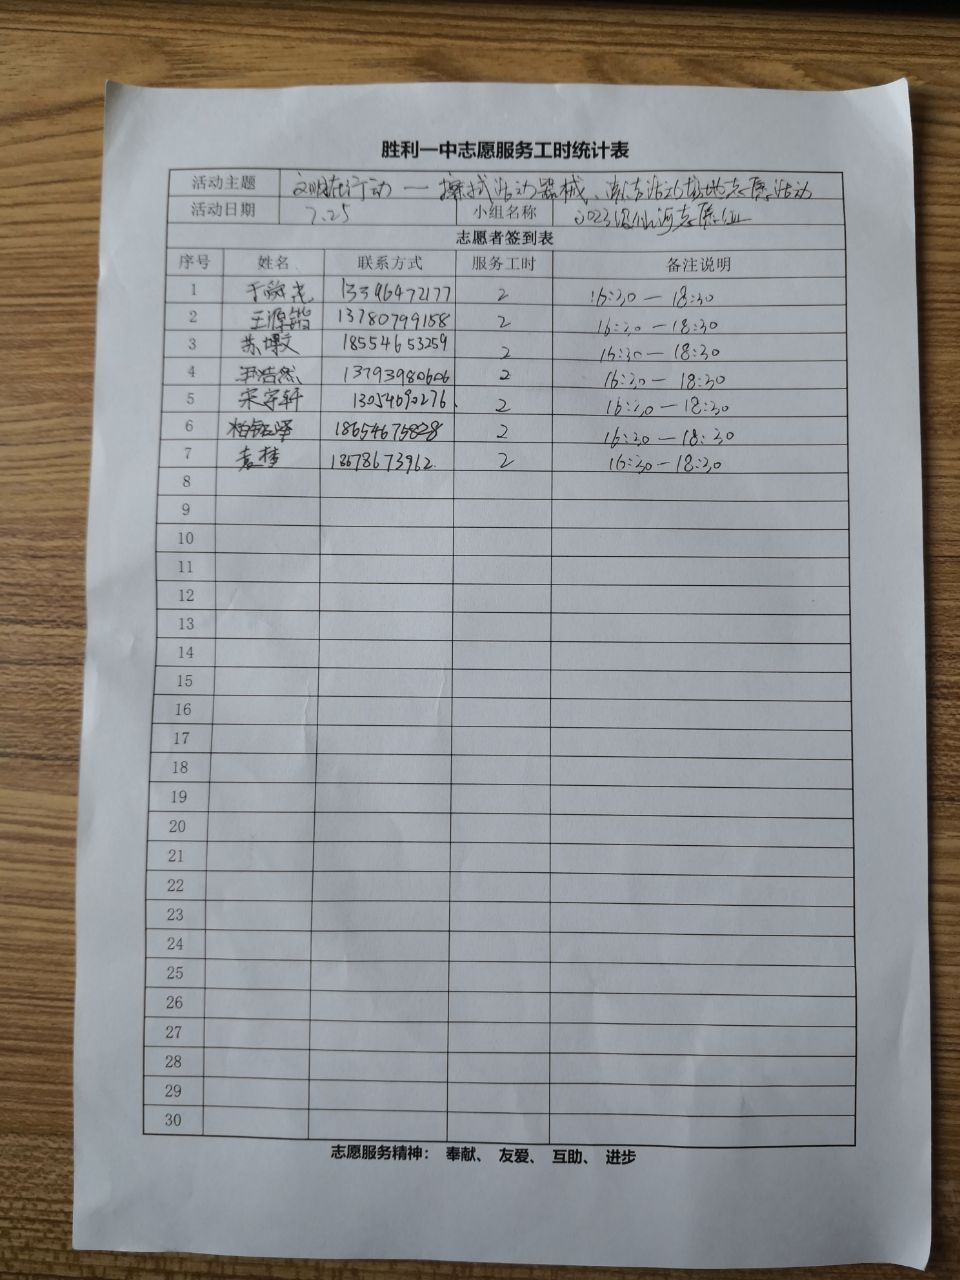 胜利一中志愿服务工时统计表
活动主题 文明在行动 — 擦拭活动器械、清洁活动场地志愿活动
活动日期 7.25 小组名称 2023级仙河志愿
志愿者签到表
序号 姓名 联系方式 服务工时 备注说明
1 13396472177 2 16:30 — 18:30
2 王源锴 13780799158 2 16:30 — 18:30
3 苏博文 18554653259 2 16:30 — 18:30
4 尹浩然 13793980606 2 16:30 — 18:30
5 宋宇轩 13054690276 2 16:30 — 18:30
6 18654675828 2 16:30 — 18:30
7 袁梦 18678673962 2 16:30 — 18:30
8
9
10
11
12
13
14
15
16
17
18
19
20
21
22
23
24
25
26
27
28
29
30
志愿服务精神： 奉献、 友爱、 互助、 进步